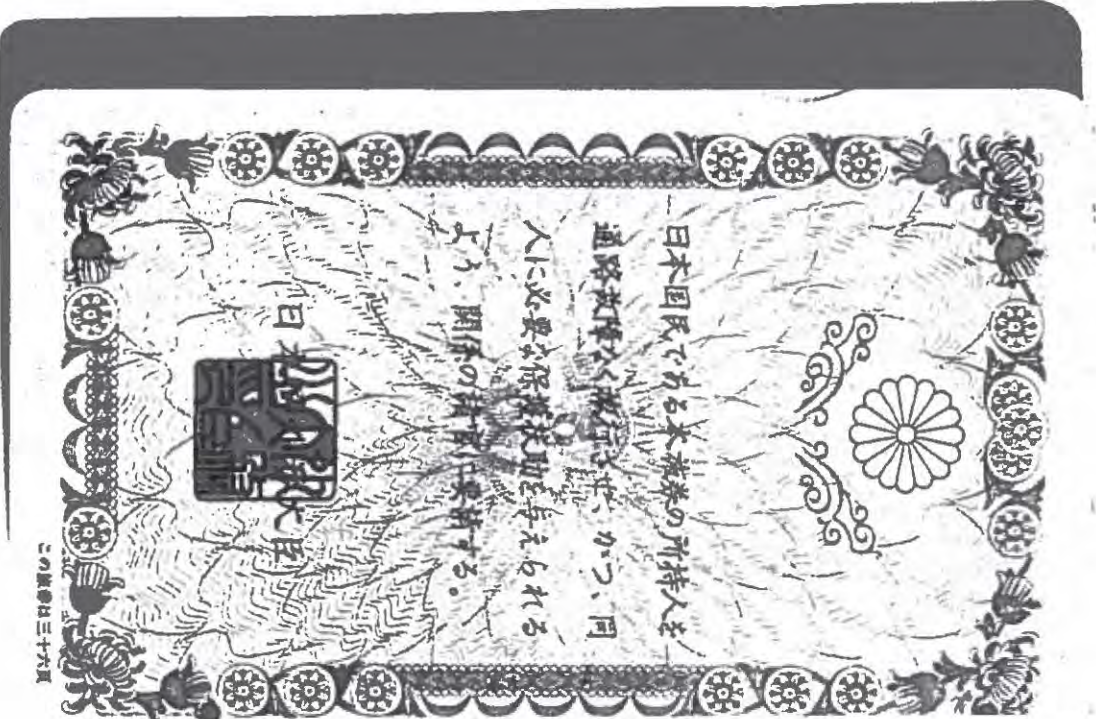 日本国民である本旅券の所持人を
通路故障なく旅行させ、かつ、同
人に必要な保護扶助を与えられる
よう、関係の諸官に要請する。
日本国外務大臣
この旅券は三十六頁